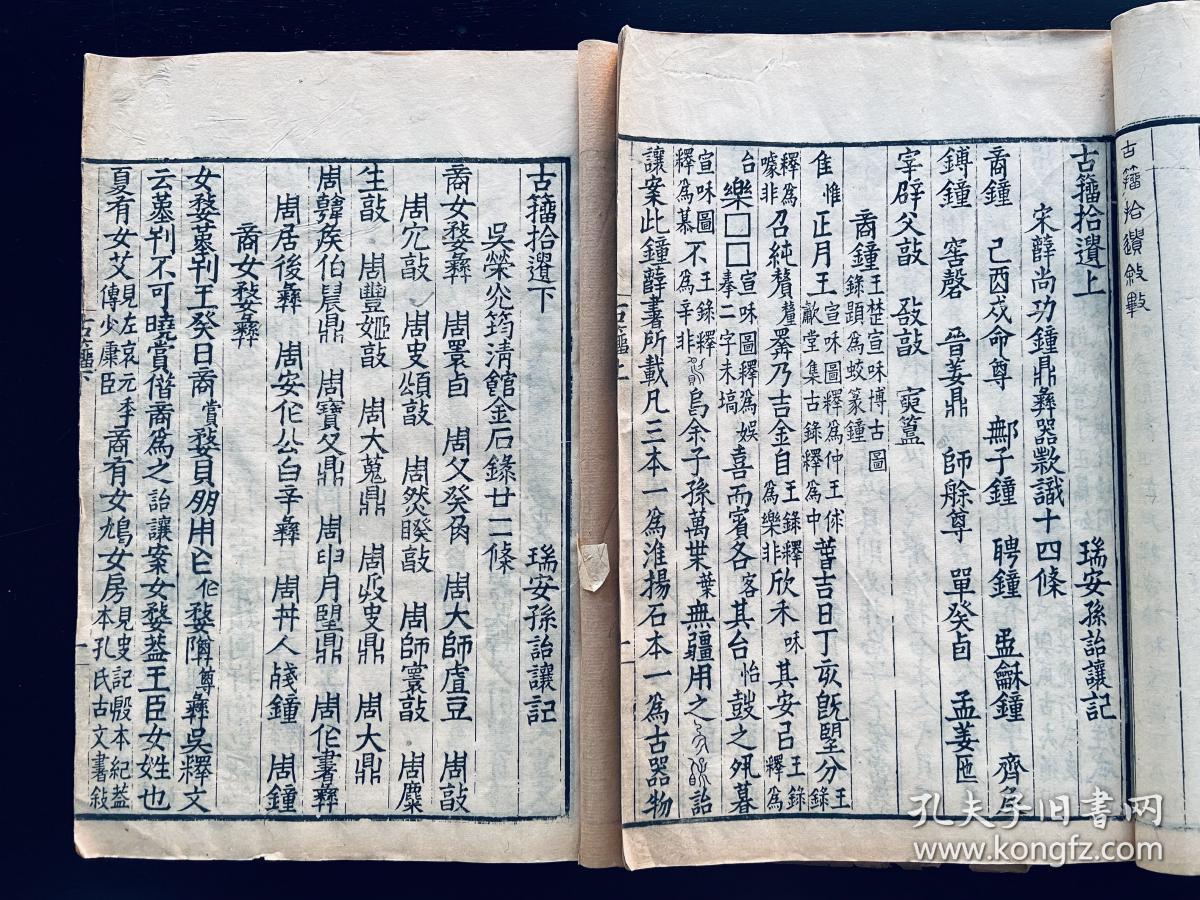 古籒拾遺敍
古籒拾遺上　瑞安孫詒讓記
宋薛尚功鐘鼎彝器款識十四條
商鐘　己酉戍命尊　鄦子鐘　聘鐘　盄龢鐘　齊矦
鎛鐘　窖磬　晉姜鼎　師艅尊　單癸卣　孟姜匜
宰辟父敦　敔敦　寅簋
商鐘王楚宣味博古圖錄題爲蛟篆鐘
隹惟正月王歔堂集古錄釋爲中宣味圖釋爲仲王俅菩吉日丁亥旣朢分王錄
釋爲召純釐釐嘼乃吉金自王錄釋爲樂非欣禾味其安吕王錄釋爲
台樂□□宣味圖釋爲娛奉二字未塙喜而賓各客其台怡鼓之夙暮
宣味圖王錄釋釋爲慕不爲辛非烏余子孫萬枼葉無疆用之詒
讓案此鐘薛書所載凡三本一爲淮揚石本一爲古器物
古籒上
古籒拾遺下　瑞安孫詒讓記
吳榮光筠淸館金石錄廿二條
商女婺彝　周睘卣　周父癸角　周大師虘豆　周敦
周宂敦　周史頌敦　周然睽敦　周師寰敦　周麋
生敦　周豐姬敦　周大蒐鼎　周史鼎　周大鼎
周韓矦伯晨鼎　周寶父鼎　周明月朢鼎　周作書彝
周居後彝　周安作公白辛彝　周丼人殘鐘　周鐘
商女婺彝
女婺蓽刊王癸日商賞婺貝朋用作婺隣尊彝吳釋文
云蓽刊不可曉賞偕商爲之詒讓案女婺葢王臣女姓也
夏有女艾見左哀元年傳少康臣商有女鳩女房見史記殷本紀葢本孔氏古文書敍
古籒下
孔夫子旧书网
www.kongfz.com